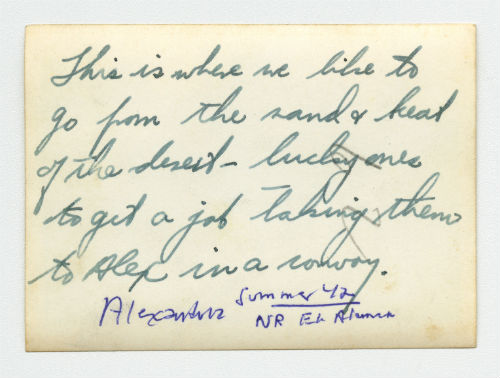 This is where we like to
go from the sand & heat
of the desert - lucky ones
to git a job taking them
to Alex in a convoy.
Alexandria Summer 42
NR El Alamein